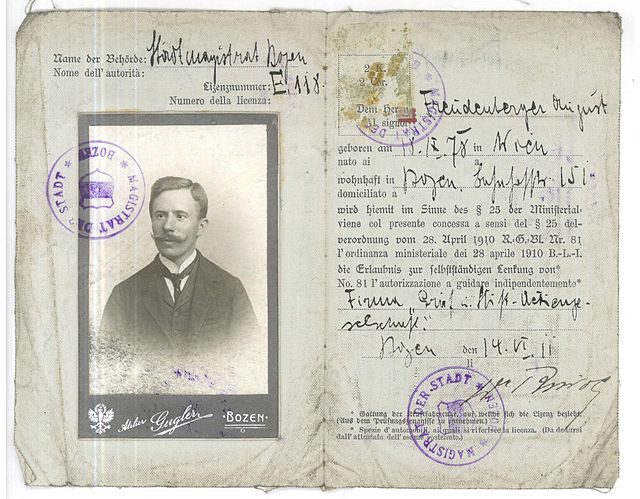 Name der Behörde: Stadtmagistrat Bozen
Nome dell'autorità:
Lizenznummer: E. 118.
Numero della licenza:
MAGISTRAT DER STADT BOZEN
Atelier Gugler BOZEN
2
2
Dem Herrn Freudenberger August
Al signor
geboren am 18. IX. 78 in Wien
nato ai a
wohnhaft in Bozen, 151
domiciliato a
wird hiemit im Sinne des § 25 der Ministerial-
viene col presente concessa a sensi del § 25 del-
verordnung vom 28. April 1910 R.-G.-Bl. Nr. 81
l'ordinanza ministeriale dei 28 aprile 1910 B.-L.-I.
die Erlaubnis zur selbstständigen Lenkung von*
No. 81 l'autorizzazione a guidare indipendentemente*
Firma „Gräf u. Stift-Actienge-
selschaft."
Bozen den 14. VI. 11
li
* Gattung der Kraftfahrzeuge, auf welche sich die Lizenz bezieht.
(Aus dem Prüfungszeugnisse zu entnehmen.)
* Spezie d'automobili, ai quali si riferisce la licenza. (Da dedursi
dall'attestato dell'esame sostenuto.)
MAGISTRAT DER STADT BOZEN